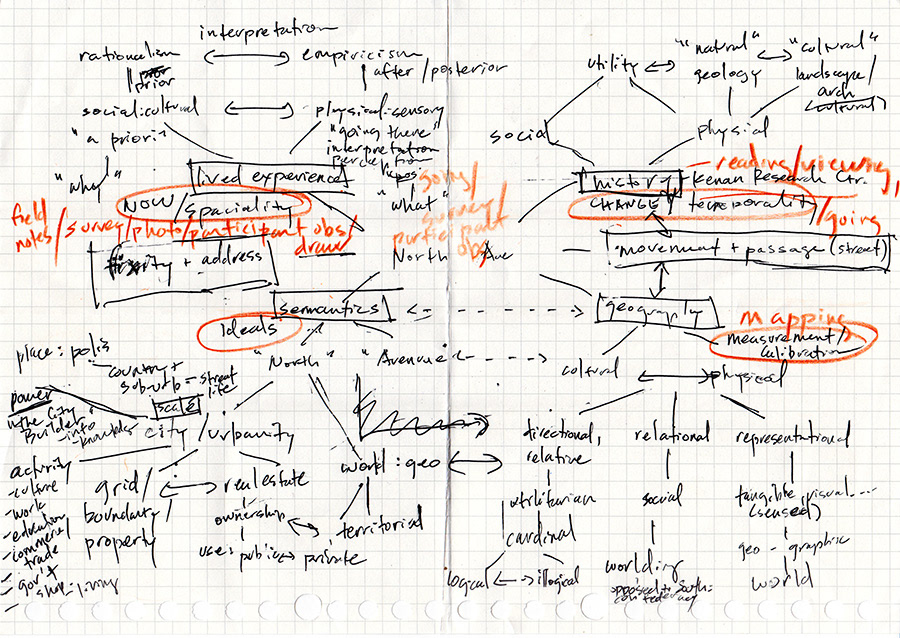 interpretation
rationalism
empiricism
prior
after/posterior
social:cultural
physical:sensory
"a priori"
"going there"
interpretation
perception
"why"
lived experience
"what"
NOW/spaciality
field notes/survey/photo/participant obs/
draw
+ address
going/
survey
participant
obs
North Ave
semantics
Ideals
place: polis
country +
sub-urb = street
life
power
in the City
Builder
into
knowledge
scale
"North"
"Avenue"
city/urbanity
activity
- culture
- work
- education
- commerce/
trade
- gov't
- living
grid/
boundary/
property
real estate
ownership
use: public private
world:geo
territorial
utility
"natural"
geology
"cultural"
landscape/
arch
(cultural)
social
physical
history
reading/viewing,
Kenan Research Ctr.
CHANGE/temporality
/going
movement + passage (street)
geography
mapping
measurement/
calibration
cultural
physical
directional,
relative
relational
representational
utilitarian
social
tangible, visual...
(sensed)
cardinal
geo-graphic
logical
illogical
worlding
opposed to South:
confederacy
world